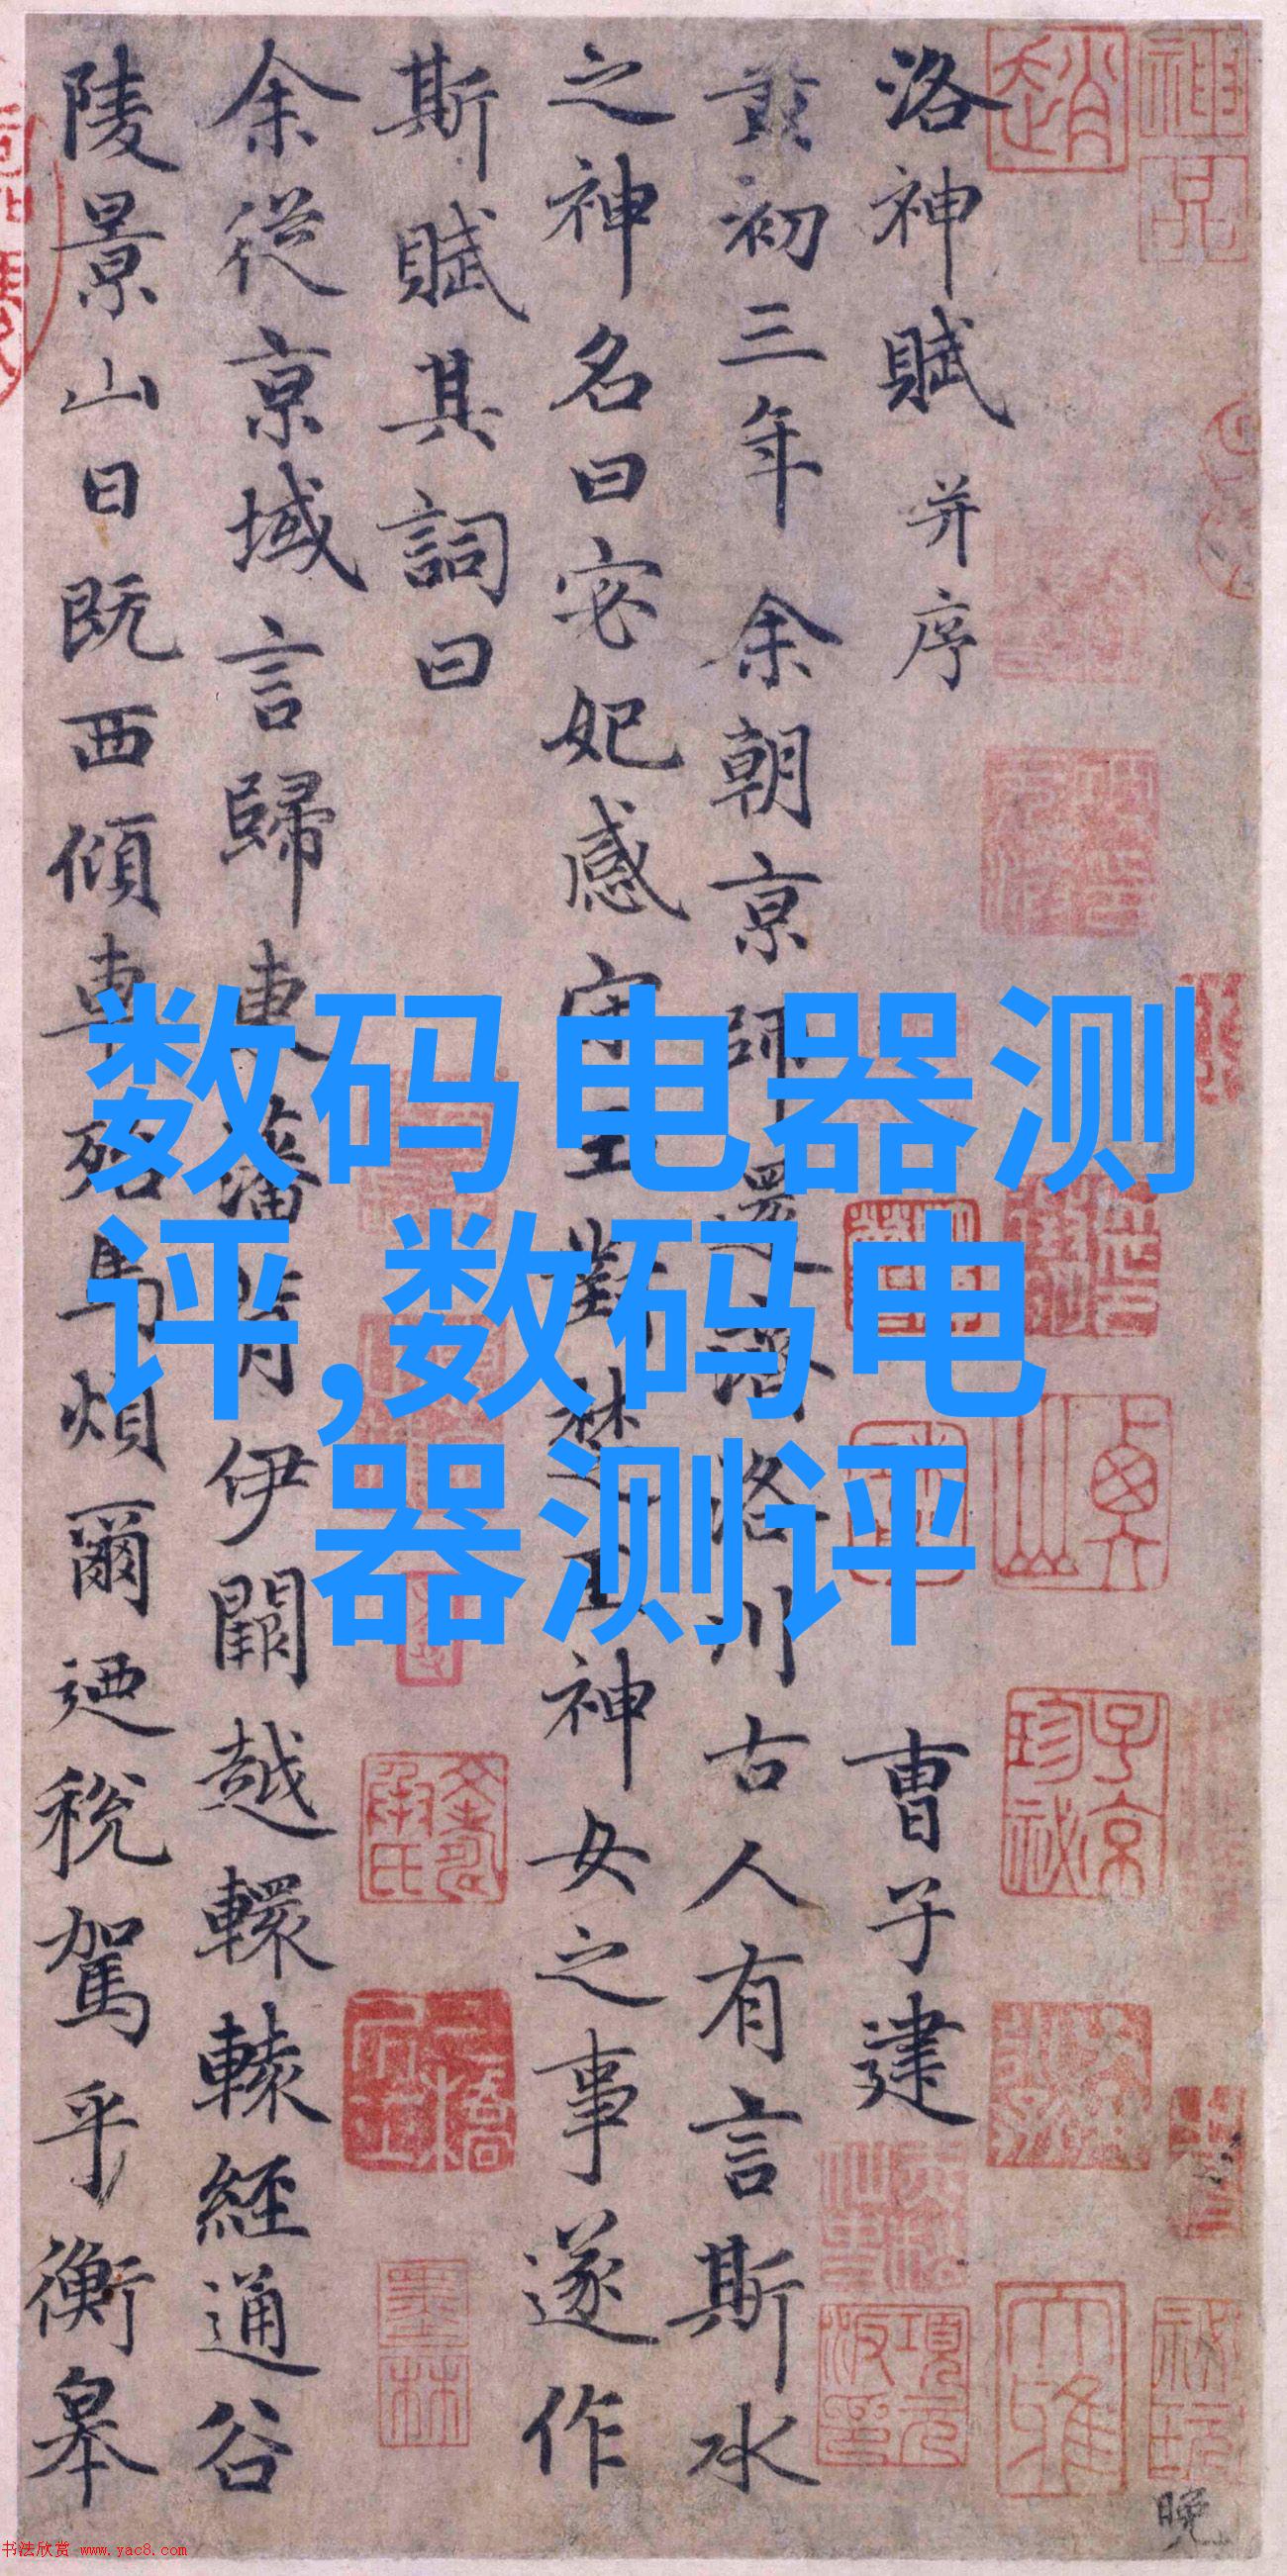 洛神賦 并序 曹子建
黄初三年余朝京師還濟洛川古人有言斯水
之神名曰宓妃感宋玉對楚王神女之事遂作
斯賦其詞曰
余從京域言歸東藩背伊闕越轘轅經通谷
陵景山日既西傾車殆馬煩爾迺稅駕乎蘅皋
数码电器测
评,数码电
器测评
趙
子京
珍祕
墨林
項元
晚
书法欣赏 www.yac8.com